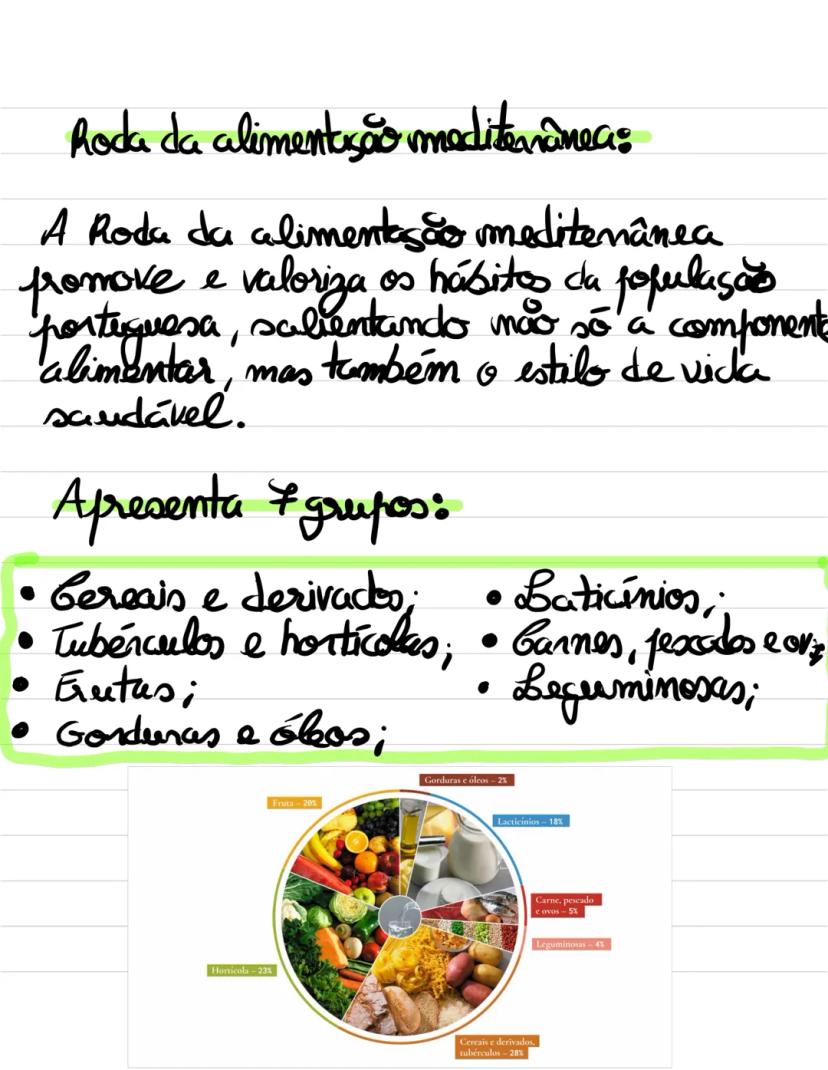 Roda da alimentação mediterrânea:
A Roda da alimentação mediterrânea
promove e valoriza os hábitos da população
portuguesa, salientando não só a component
alimentar, mas também o estilo de vida
saudável.
Apresenta 7 grupos:
• Cereais e derivados;
• Tubérculos e hortícolas;
• Frutas;
• Gorduras e óleos;
• Laticínios;
• Carnes, pescados e ovos;
• Leguminosas;
Gorduras e óleos – 2%
Fruta – 20%
Lacticínios – 18%
Carne, pescado
e ovos – 5%
Leguminosas – 4%
Hortícola – 23%
Cereais e derivados,
tubérculos – 28%